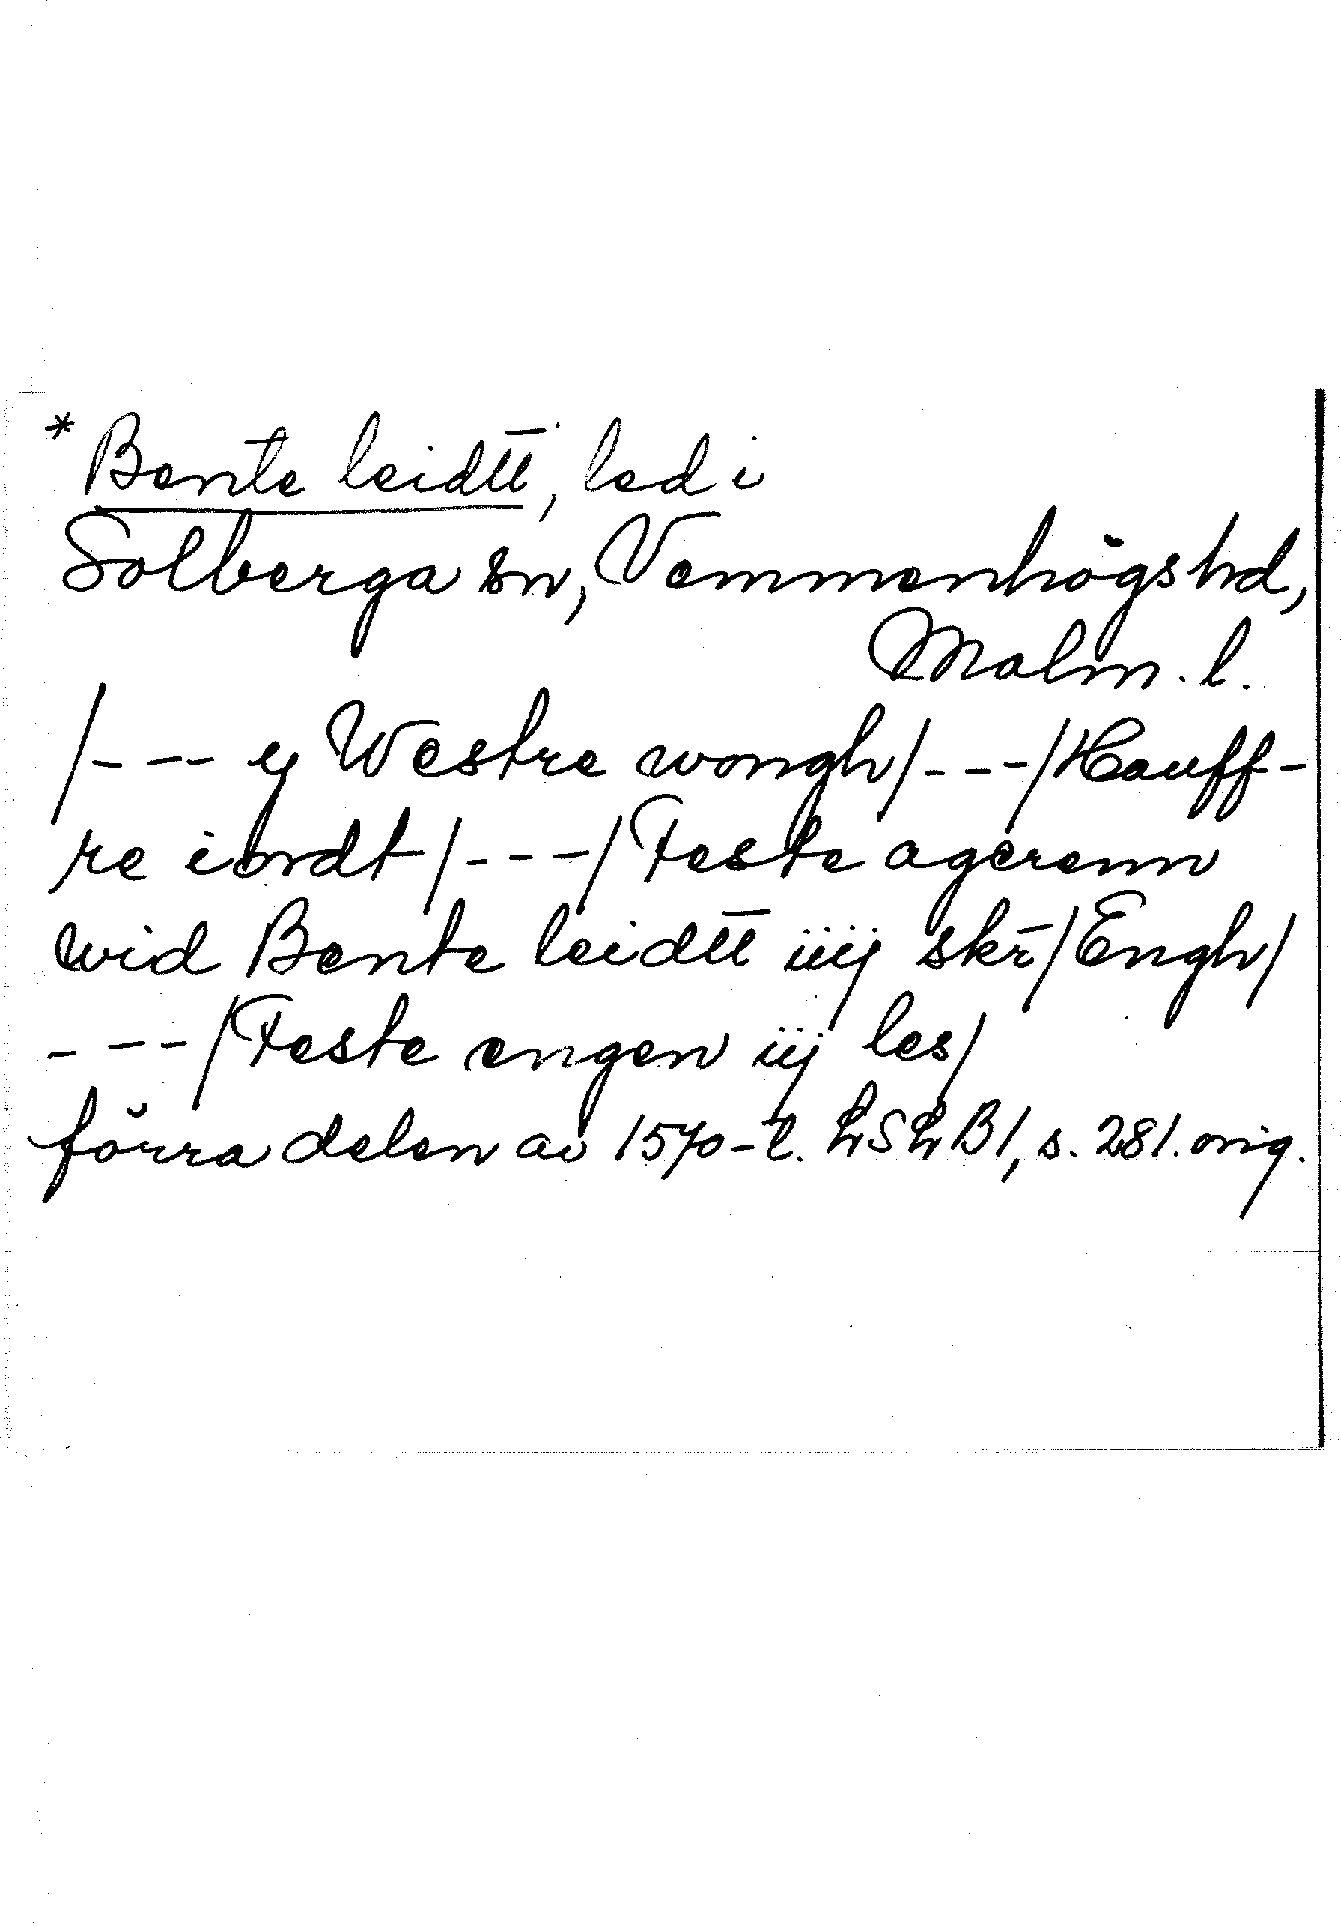 * Bente leidtt, led i
Solberga sn, Vemmenhögs hd,
Malm. l.
/--- ej Westre wongh/---/Hauff-
re iordt/---/Feste agerenn
wid Bente leidtt iiij skr/Engh/
---/Feste engen iij les/
förra delen av 1570-t. LSLB1, s. 281. orig.